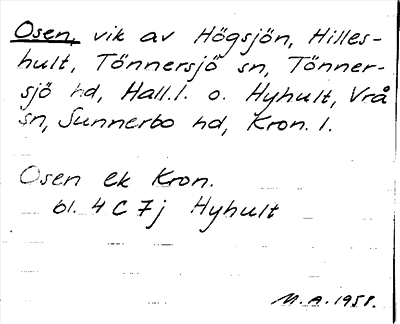 Osen, vik av Högsjön, Hilles-
hult, Tönnersjö sn, Tönner-
sjö hd, Hall. l. o. Hyhult, Vrå
sn, Sunnerbo hd, Kron. l.
Osen ek Kron.
bl. 4 C 7j Hyhult
M.A. 1958.